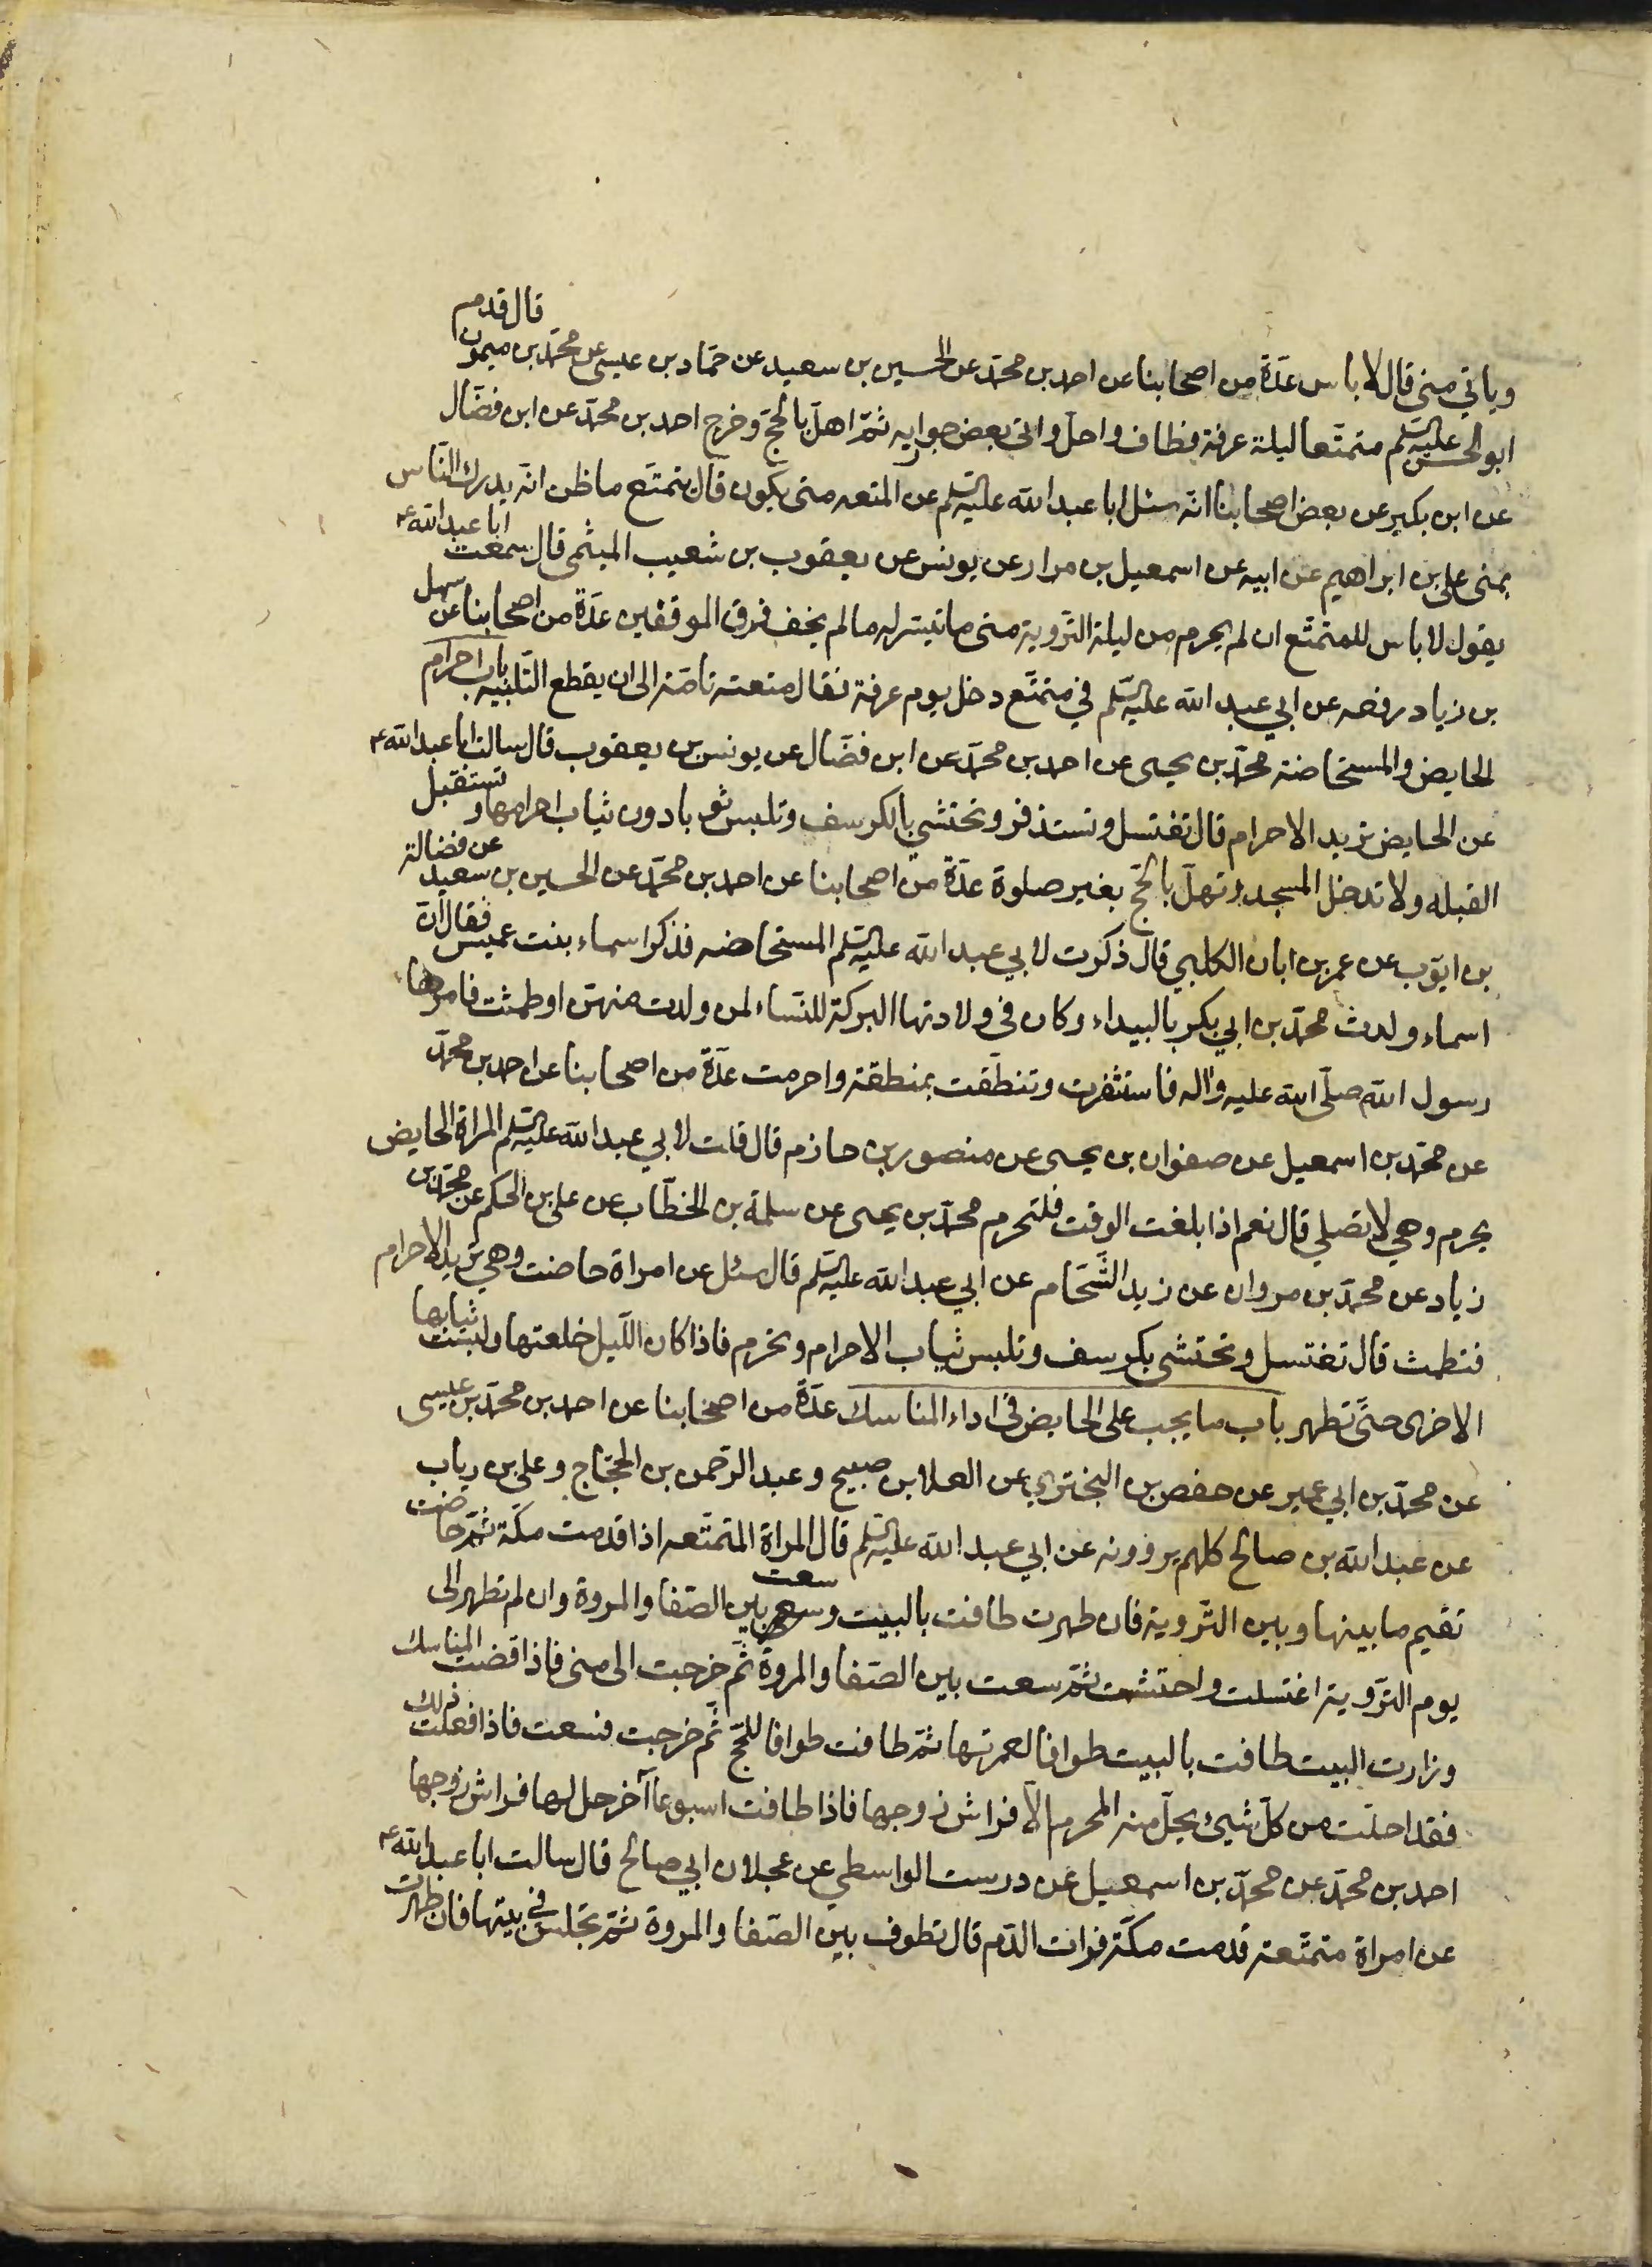 وياتي منى قال لا باس عدّة من اصحابنا عن احمد بن محمّد عن الحسين بن سعيد عن حمّاد بن عيسى عن محمّد بن ميمون قال قدم
ابو الحسن عليه السّلم متمتّعا ليلة عرفة فطاف واحلّ واتى بعض جواريه ثمّ اهلّ بالحجّ وخرج احمد بن محمّد عن ابن فضّال
عن ابن بكير عن بعض اصحابنا انّه سئل ابا عبد الله عليه السّلم عن المتعه متى يكون قال يتمتّع ما ظن انّه يدرك النّاس
بمنى علي بن ابراهيم عن ابيه عن اسمعيل بن مرار عن يونس عن يعقوب بن شعيب الميثمى قال سمعت ابا عبد الله ع
يقول لا باس للمتمتّع ان لم يحرم من ليلة التّروية متى ما تيسّر له ما لم يخف فوق الموقفين عدّة من اصحابنا عن سهل
بن زياد رفعه عن ابي عبد الله عليه السّلم في متمتّع دخل يوم عرفة فقال متعته تامّة الى ان يقطع التّلبيه باب احرام
الحايض والمستحاضه محمّد بن يحيى عن احمد بن محمّد عن ابن فضّال عن يونس بن يعقوب قال سالت ابا عبد الله ع
عن الحايض تريد الاحرام قال تغتسل وتستذفر وتحتشي بالكرسف وتلبس ثوبا دون ثياب احرامها وتستقبل
القبله ولا تدخل المسجد وتهلّ بالحجّ بغير صلوة عدّة من اصحابنا عن احمد بن محمّد عن الحسين بن سعيد عن فضالة
بن ايّوب عن عمر بن ابان الكلبي قال ذكرت لابي عبد الله عليه السّلم المستحاضه فذكر اسماء بنت عميس فقال انّ
اسماء ولدت محمّد بن ابي بكر بالبيداء وكان في ولادتها البركة للنّساء لمن ولدت منهنّ او طمثت فامرها
رسول الله صلّى الله عليه واله فاستثفرت وتنطّقت بمنطقة واحرمت عدّة من اصحابنا عن احمد بن محمّد
عن محمّد بن اسمعيل عن صفوان بن يحيى عن منصور بن حازم قال قلت لابي عبد الله عليه السّلم المراة الحايض
يحرم وهي لا تصلي قال نعم اذا بلغت الوقت فلتحرم محمّد بن يحيى عن سلمة بن الخطّاب عن علي بن الحكم عن محمّد بن
زياد عن محمّد بن مروان عن زيد الشّحّام عن ابي عبد الله عليه السّلم قال سئل عن امراة حاضت وهي تريد الاحرام
فتطمث قال تغتسل وتحتشى بكرسف وتلبس ثياب الاحرام وتحرم فاذا كان اللّيل خلعتها ولبست ثيابها
الاخرى حتّى تطهر باب ما يجب على الحايض في اداء المناسك عدّة من اصحابنا عن احمد بن محمّد بن عيسى
عن محمّد بن ابي عمير عن حفص بن البختري عن العلا بن صبيح وعبد الرّحمن بن الحجّاج وعلي بن رياب
عن عبد الله بن صالح كلهم يروونه عن ابي عبد الله عليه السّلم قال المراة المتمتّعه اذا قدمت مكّة ثمّ حاضت
تقيم ما بينها وبين التّروية فان طهرت طافت بالبيت وسعت بين الصّفا والمروة وان لم تطهر الى
يوم التّروية اغتسلت واحتشت ثمّ سعت بين الصّفا والمروة ثمّ خرجت الى منى فاذا قضت المناسك
وزارت البيت طافت بالبيت طوافا لعمرتها ثمّ طافت طوافا للحجّ ثمّ خرجت فسعت فاذا فعلت ذلك
فقد احلّت من كلّ شيئ يحلّ منه المحرم الّا فراش زوجها فاذا طافت اسبوعا آخر حل لها فراش زوجها
احمد بن محمّد عن محمّد بن اسمعيل عن درست الواسطي عن عجلان ابي صالح قال سالت ابا عبد الله ع
عن امراة متمتّعة قدمت مكّة فرات الدّم قال تطوف بين الصّفا والمروة ثمّ تجلس في بيتها فان طهرت